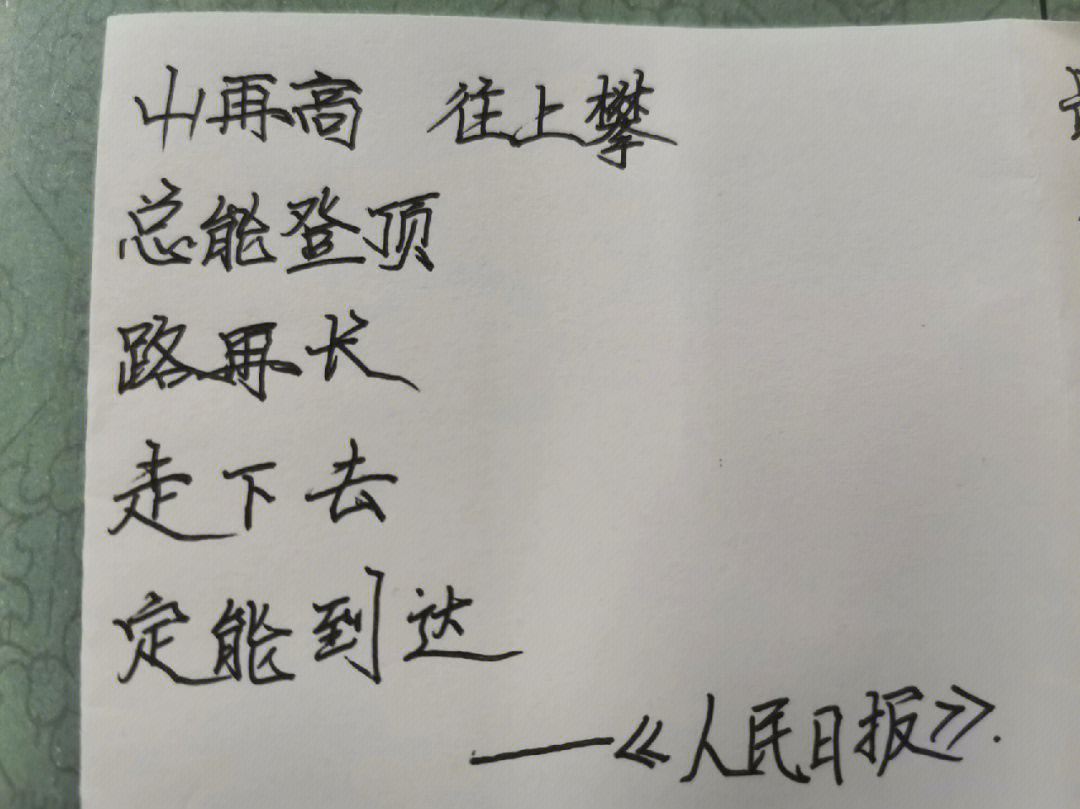 山再高 往上攀
总能登顶
路再长
走下去
定能到达
——《人民日报》.